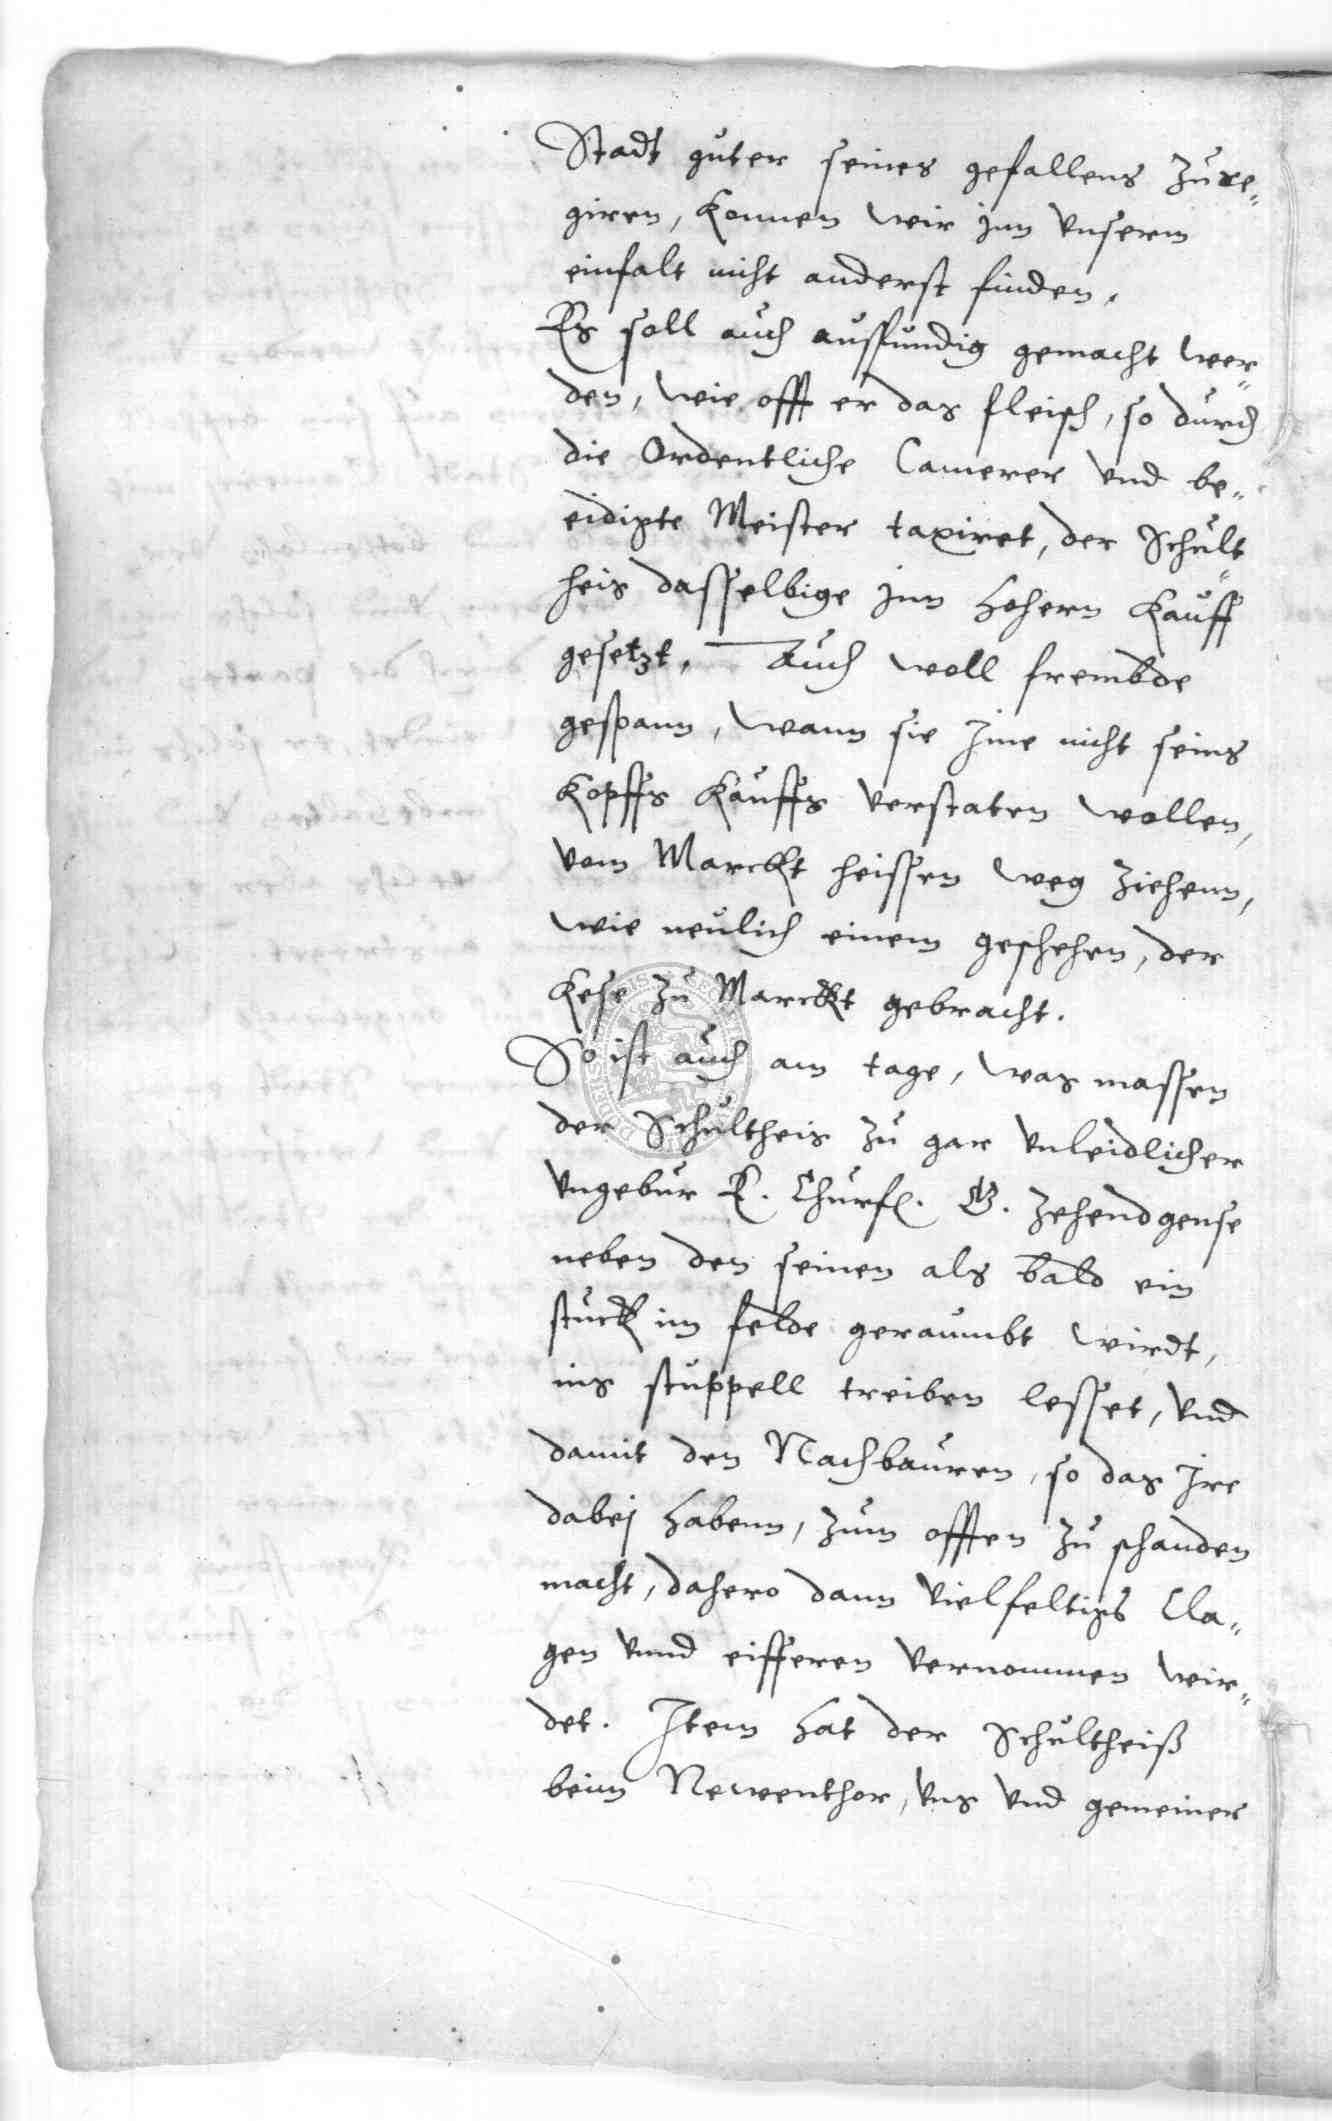 Stadt guter seines gefallens zu re-
giren, konnen wir jnn vnserm
einfalt nicht anderst finden.
Es soll auch ausfundig gemacht wer-
den, wie offt er das fleisch, so durch
die Ordentliche Camerer vnd be-
eidigte Meister taxiret, der Schult-
heis dasselbige jnn hohern kauff
gesetzt. Auch woll frembde
gespann, wann sie Jme nicht seins
kopffs kauffs verstaten wollen,
vom Marckt heissen weg ziehenn,
wie neulich einem geschehen, der
kese zu Marckt gebracht.
So ist auch am tage, was massen
der Schultheis zu gar vnleidlicher
vngebur E. Churf. G. zehendgense
neben den seinen als bald ein
stuck im felde geraumbt wirdt,
ins stuppell treiben lesset, vnd
damit den Nachbauren, so das Jre
dabej habenn, zum offten zu schanden
macht, dahero dann vielfeltigs Cla-
gen vnnd eifferen vernommen wir-
det. Item hat der Schultheiß
beim Neweenthor, vns vnd gemeiner